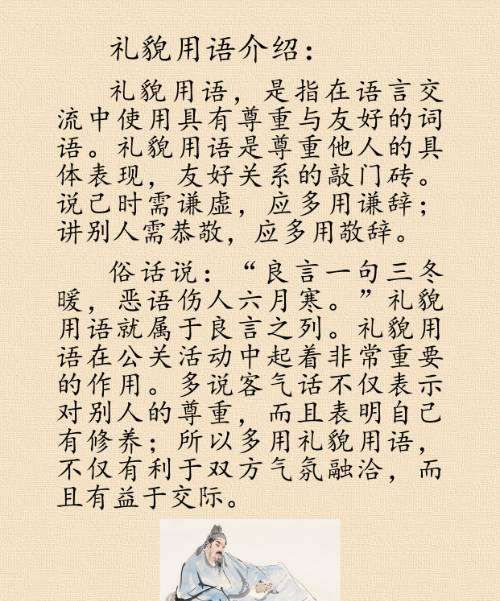 礼貌用语介绍：
礼貌用语，是指在语言交
流中使用具有尊重与友好的词
语。礼貌用语是尊重他人的具
体表现，友好关系的敲门砖。
说己时需谦虚，应多用谦辞；
讲别人需恭敬，应多用敬辞。
俗话说：“良言一句三冬
暖，恶语伤人六月寒。”礼貌
用语就属于良言之列。礼貌用
语在公关活动中起着非常重要
的作用。多说客气话不仅表示
对别人的尊重，而且表明自己
有修养；所以多用礼貌用语，
不仅有利于双方气氛融洽，而
且有益于交际。